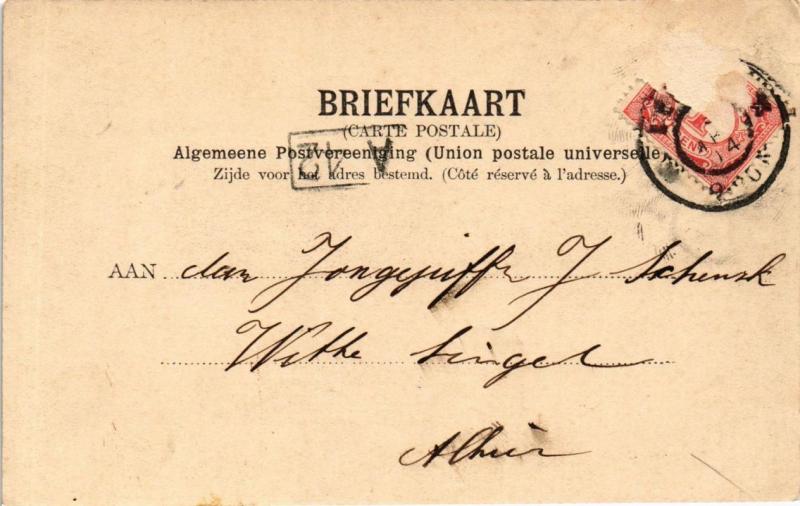 BRIEFKAART
(CARTE POSTALE)
Algemeene Postvereeniging (Union postale universelle)
Zijde voor het adres bestemd. (Côté réservé à l'adresse.)
A 12
AAN den J. Schenk
Witte Singel
Alhier